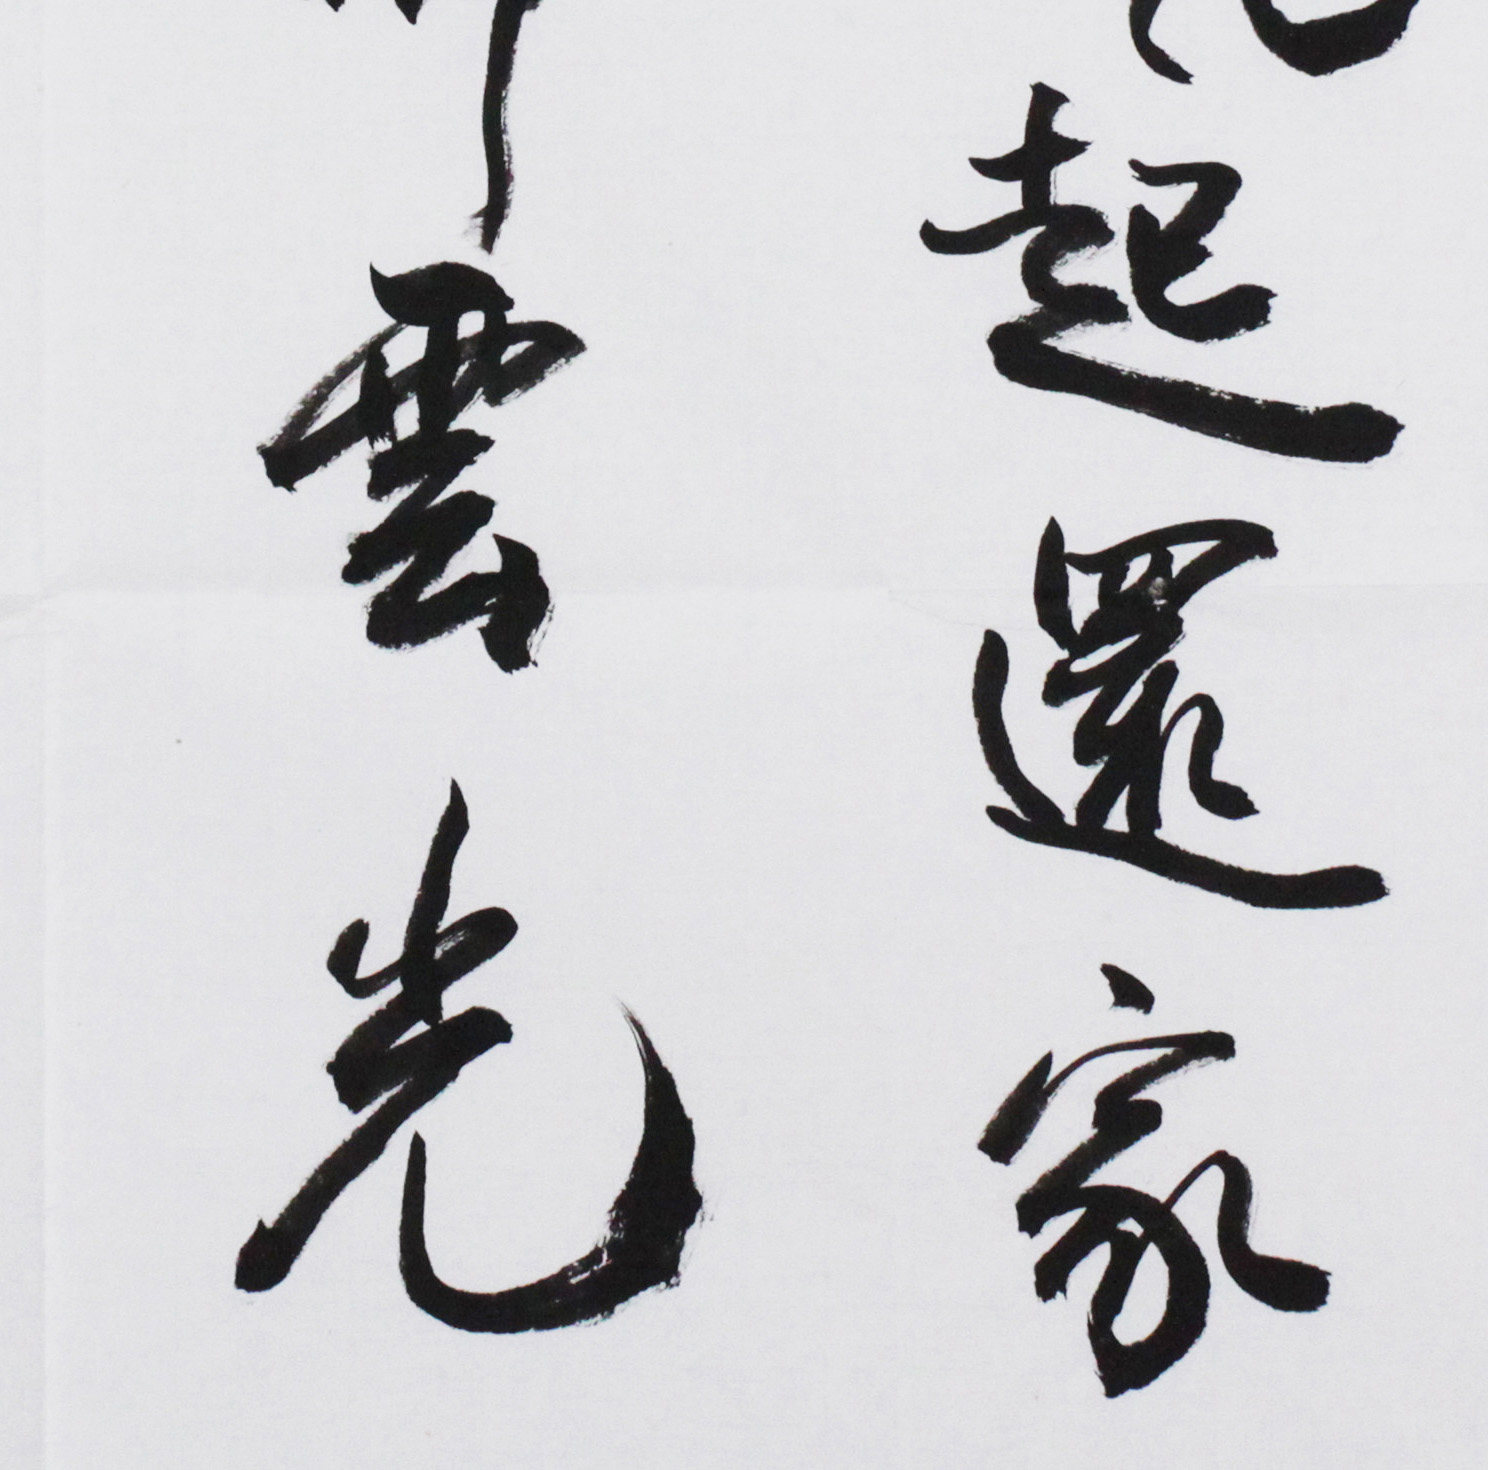 起還家
雲光